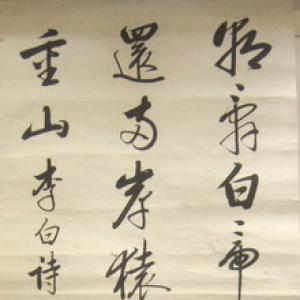 朝辭白帝
還兩岸猿
重山李白詩